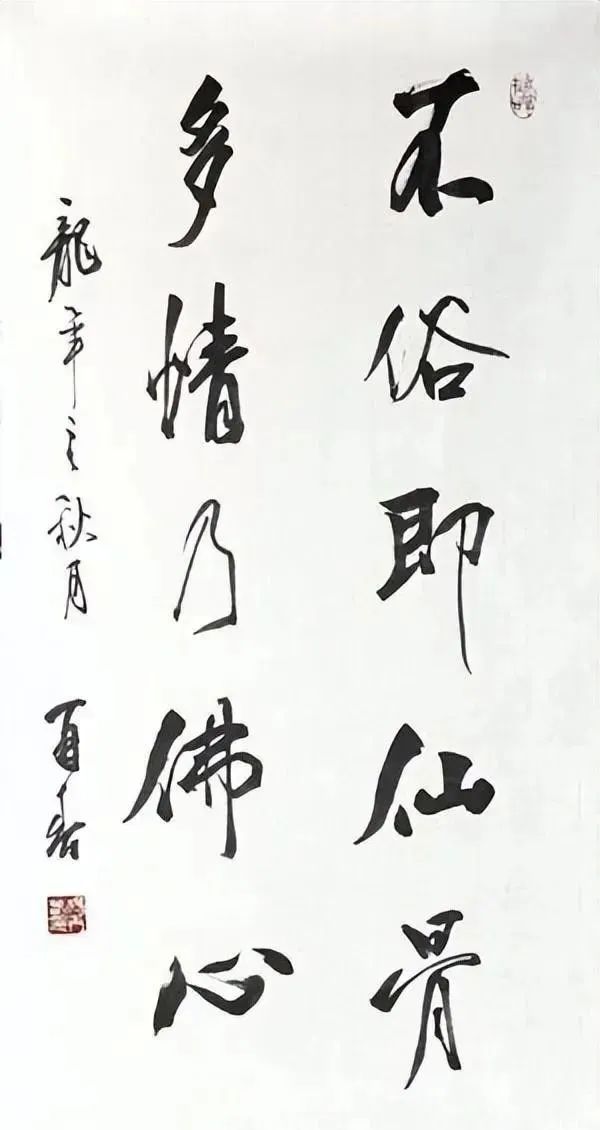 不俗即仙骨
多情乃佛心
龍年之秋月